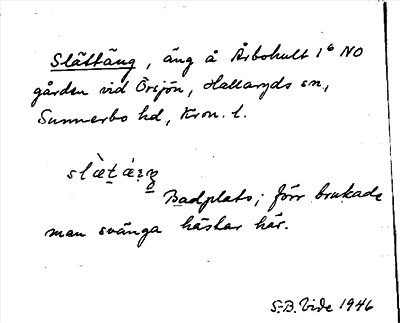 Slättäng, äng å Årbohult 1⁶ NO
gården vid Örsjön, Hallaryds sn,
Sunnerbo hd, Kron. l.
Badplats; förr brukade
man svänga hästar här.
S.-B. Vide 1946